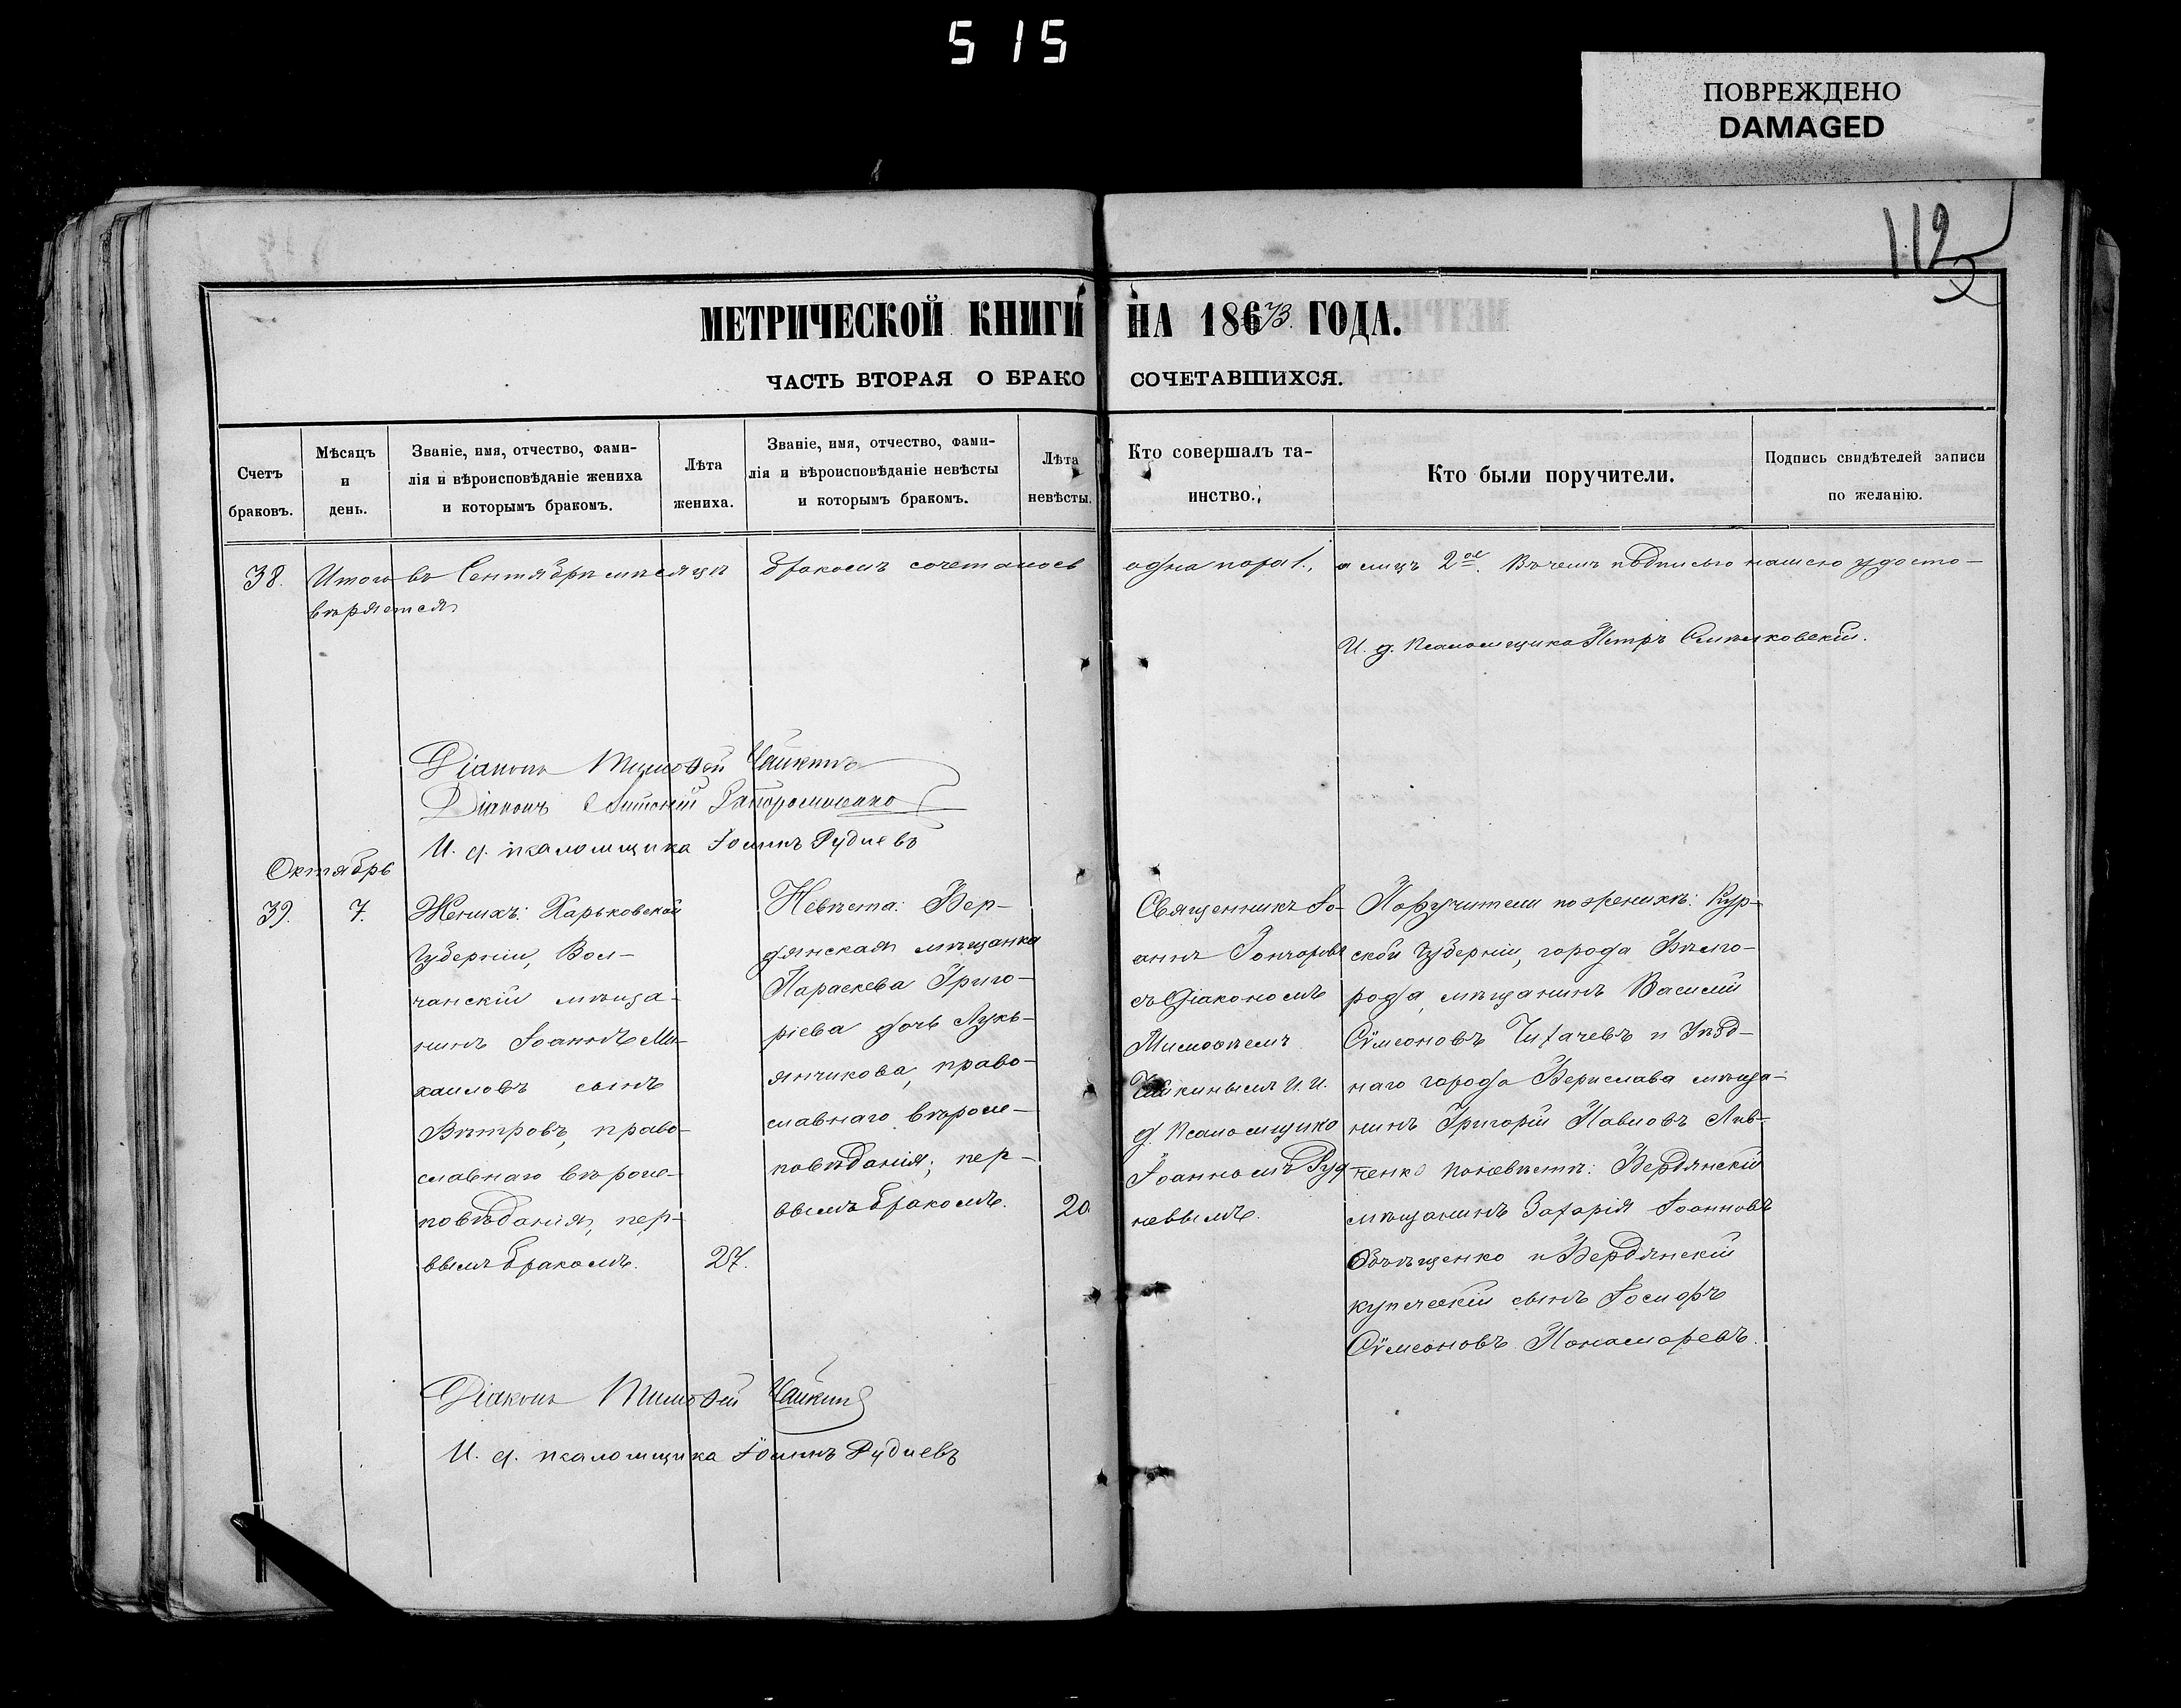 515
ПОВРЕЖДЕНО
DAMAGED
112
МЕТРИЧЕСКОЙ КНИГИ НА 1873 ГОДА.
ЧАСТЬ ВТОРАЯ О БРАКОСОЧЕТАВШИХСЯ.
Счетъ
браковъ.
Мѣсяцъ
и
день.
Званіе, имя, отчество, фами-
лія и вѣроисповѣданіе жениха
и которымъ бракомъ.
Лѣта
жениха.
Званіе, имя, отчество, фами-
лія и вѣроисповѣданіе невѣсты
и которымъ бракомъ.
Лѣта
невѣсты.
Кто совершалъ та-
инство.
Кто были поручители.
Подпись свидѣтелей записи
по желанію.
38. Итого въ Сентябрѣ мѣсяцѣ бракомъ сочеталось одна пара 1., а лицъ 2ое. Въ чемъ подписью нашею удосто-
вѣряется
И. д. Псаломщика Петръ
Діаконъ Тимоѳей Чайкинъ
Діаконъ Антоній
И. д. псаломщика Іоаннъ Рудневъ
Октябрь
39.
7.
Женихъ: Харьковской
губерніи, Вол-
чанскій мѣща-
нинъ Іоаннъ Ми-
хаиловъ сынъ
Вѣтровъ, право-
славнаго вѣроис-
повѣданія, пер-
вымъ бракомъ.
27.
Невѣста: Бер-
дянская мѣщанка
Параскева Григо-
ріева дочь Лукь-
янчикова, право-
славнаго вѣроис-
повѣданія; пер-
вымъ бракомъ.
20.
Священникъ Іо-
аннъ Гончаровъ
съ Діакономъ
Тимоѳеемъ
Чайкинымъ и И.
д. Псаломщика
Іоанномъ Руд-
невымъ.
Поручители по женихѣ: Кур-
ской губерніи, города Бѣлго-
рода, мѣщанинъ Василій
Сѵмеоновъ Чихачевъ и Уѣзд-
наго города Берислава мѣща-
нинъ Григорій Павловъ Лив-
ченко по невѣстѣ: Бердянскій
мѣщанинъ Захарія Іоанновъ
и Бердянскій
купеческій сынъ Іосифъ
Сѵмеоновъ Понаморевъ.
Діаконъ Тимоѳей Чайкинъ
И. д. псаломщика Іоаннъ Рудневъ